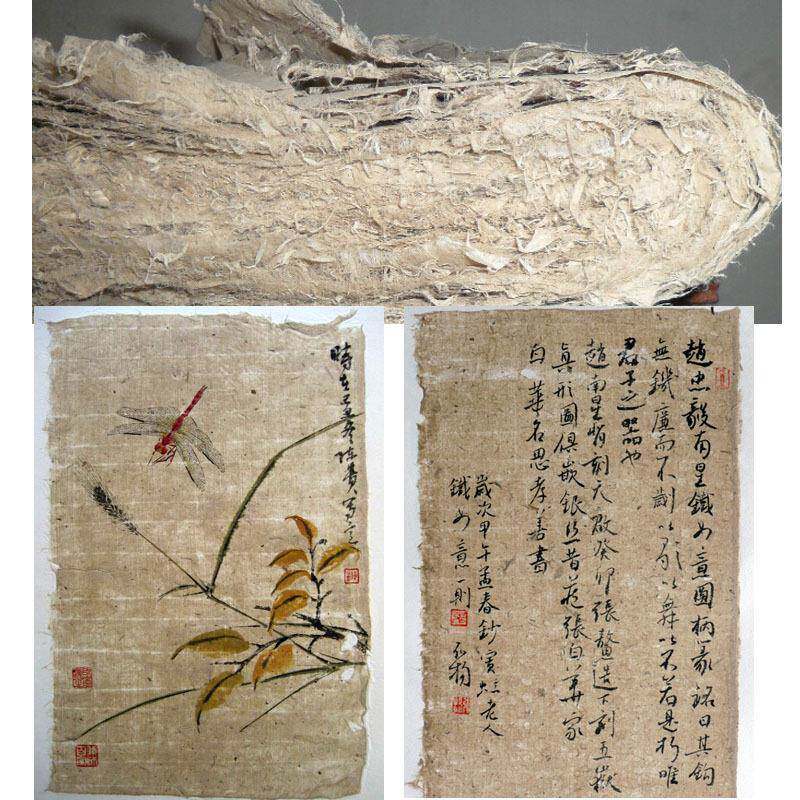 時在己丑冬陳貴寫之
趙忠毅南星鐵如意圓柄篆銘曰其鉤
無鐖廉而不劌以歌以舞以不若是折唯
君子之器也
趙南星刻天啟癸卯張鼇造下刻五嶽
真形圖俱嵌銀絲昔張伯華家
白華名思孝善書
歲次甲午孟春鈔老人
鐵如意一則